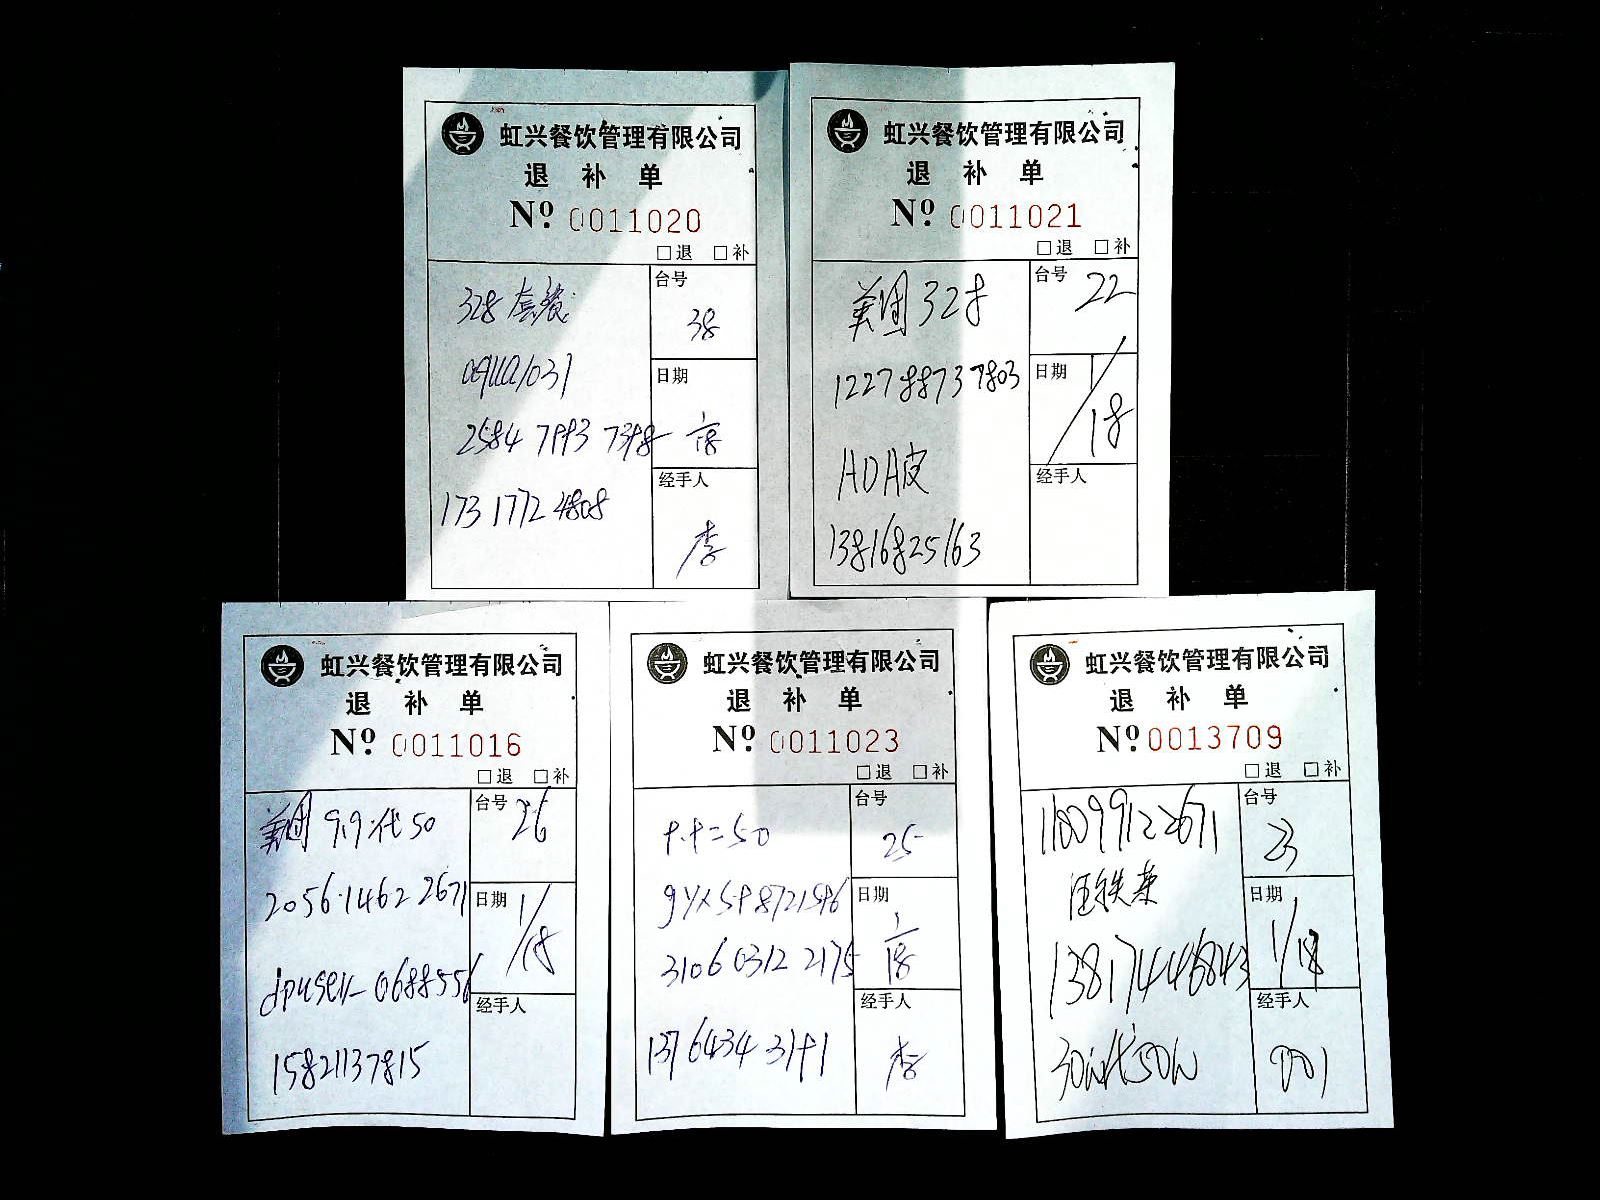 虹兴餐饮管理有限公司
退 补 单
Nº 0011020
□退 □补
328 套餐
台号
38
日期
1/18
2584 7993 7398
17317724808
经手人
李
虹兴餐饮管理有限公司
退 补 单
Nº 0011021
□退 □补
美团 328
台号 22
122788737803
日期 1/18
经手人
13816825163
虹兴餐饮管理有限公司
退 补 单
Nº 0011016
□退 □补
美团 9.9代50
台号 26
2056.1462 2671
日期 1/18
dpuser_0688556
经手人
15821137815
虹兴餐饮管理有限公司
退 补 单
Nº 0011023
□退 □补
9.9=50
台号
25
日期
1/18
3106 0312 2175
经手人
137 6434 3191
李
虹兴餐饮管理有限公司
退 补 单
Nº 0013709
□退 □补
台号
23
日期
1/18
经手人
001